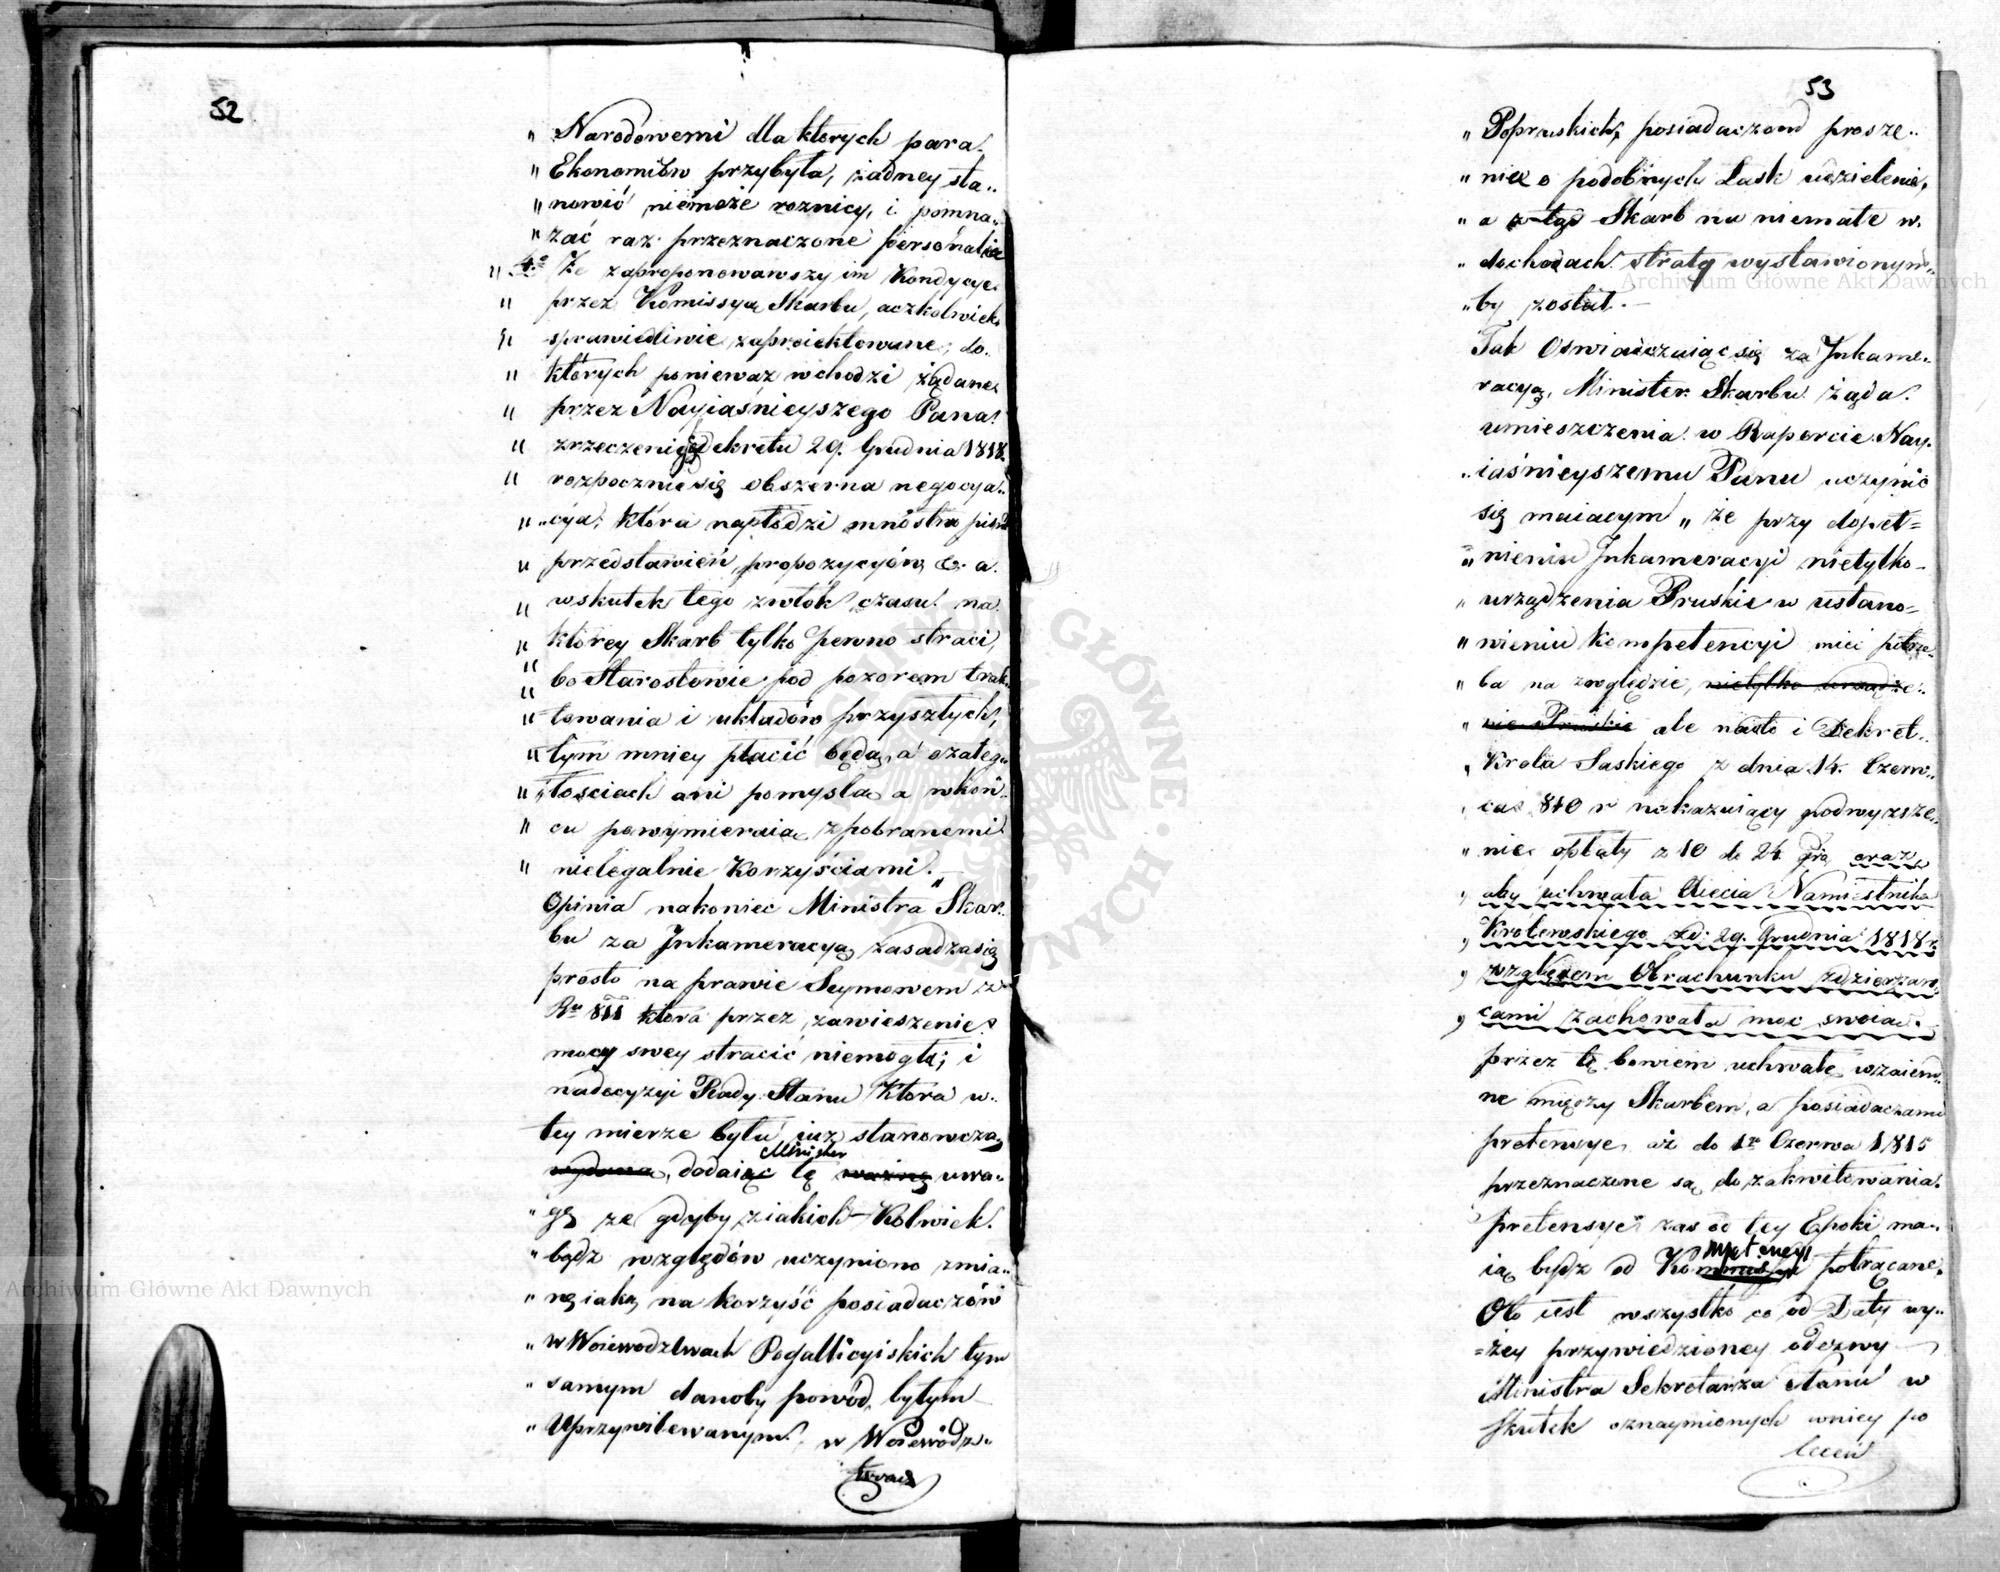 52
„ Narodowemi dla ktorych para.
„ Ekonomiów przybyła, żadney sta„
„ nowić niemoże roznicy, i pomna„
„ żać raz przeznaczone personalia
„ 4o Że zaproponowawszy im Kondycye
„ przez Kommissyą Skarbu, aczkolwiek
„ sprawiedliwie zaproiektowane, do„
„ których ponieważ wchodzi żądane
„ przez Nayiaśnieyszego Pana
„ zrzeczenie się dekretu 29. Grudnia 1818.
„ rozpocznie się obszerna negocya„
„ „cya, która napłodzi mnóstwo pism
„ przedstawień, propozycyów, &. a.
„ wskutek tego zwłok czasu na
„ którey Skarb tylko pewno straci,
„ bo Starostowie pod pozorem trak„
„ towania i układów przyszłych,
„ tym mniey płacić będą, a ozaleg„
„ „łosciach ani pomyslą a wkoń„
„ cu powymieraią z pobranemi
„ nielegalnie Korzyściami. „
Opinia nakoniec Ministra Skar„
bu za Jnkameracyą zasadza się
prosto na prawie Seymowem z
Ru 811 która przez zawieszenie
mocy swey stracić niemogła; i
nadecyzyi Rady Stanu Która w„
tey mierze była iuż stanowczą
Minister
wydana, dodaiąc tę ważną uwa„
„ gę że gdyby z iakich-Kolwiek
„ bądz względów uczyniono zmia„
„ nę iaką na korzyść posiadaczów
„ w Woiewodztwach Pogallicyiskich tym
„ samym danoby powód, byłym
„ Uprzywilewanym, w Woiewódz„
twach
53
„ Popruskich, posiadaczom prosze„
„ nia o podobnych Łask udzielenie,
„ a z tąd Skarb na niemałe w„
„ dochodach stratę wystawionym„
„ by został. —
Tak Oswiadczaiąc się za Jnkame„
racyą, Minister Skarbu żąda
umieszczenia w Raporcie Nay„
„ iaśnieyszemu Panu uczynić
się maiącym „ że przy dopeł=
„ nieniu Jnkameracyi nietylko
„ urządzenia Pruskie w ustano=
„ wieniu Kompetencyi mieć potrze„
„ ba na względzie, nietylko urządze„
„ nie Pruskie ale nadto i Dekret
„ Krola Saskiego z dnia 14. Czerw„
„ ca 810 r nakazuiący podwyzsze„
„ nie opłaty z 10 do 24 gro oraz,
„ aby uchwała Xiecia Namiestnika
„ Królewskiego zd: 29. Grudnia 1818 r.
„ względem Obrachunku z dzierzaw„
„ cami zachowała moc swoią.
przez tę bowiem uchwałę wzaiem„
ne między Skarbem, a posiadaczami
pretensye, aż do 1o Czerwa 1815
przeznaczone są do zakwitowania,
pretensye zas od tey Epoki ma„
mpetencyi
ią bydz od Kommissyi potrącane.
Oto iest wszystko co od Daty wy„
=żey przywiedzioney odezwy
Ministra Sekretarza Stanu w
skutek oznaymionych wniey po
leceń
Archiwum Główne Akt Dawnych
Archiwum Główne Akt Dawnych